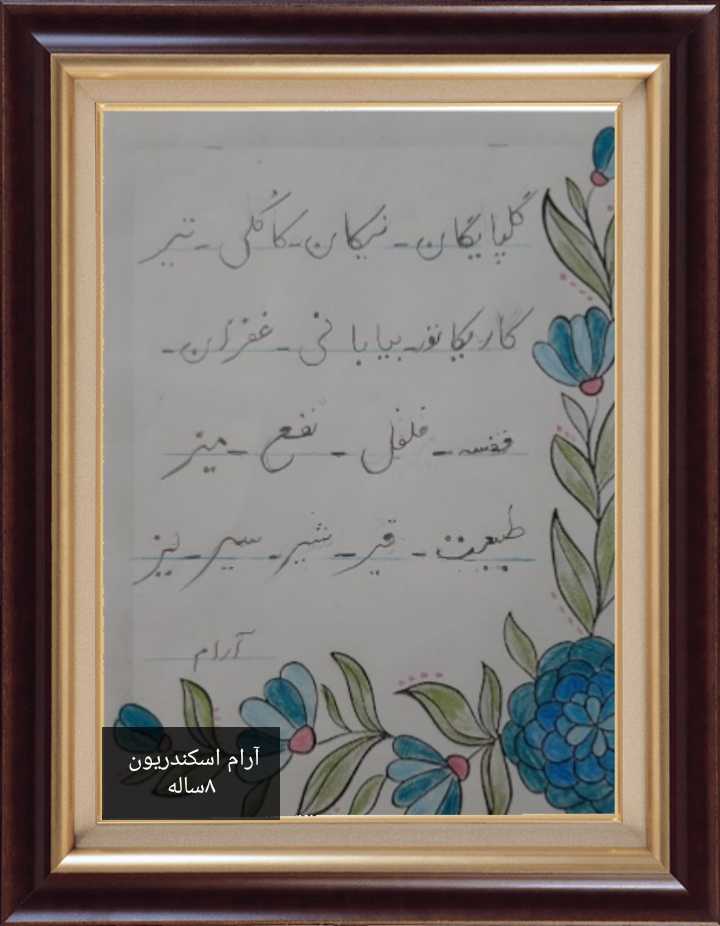 گلپایگان - نیکان - کاکلی - تیر
کاریکاتور - بیابانی - غفران -
قفسه - فلفل - نفع - میز
طبیعت - قیر - شیر - سیر - لیز
آرام
آرام اسکندریون
۸ساله